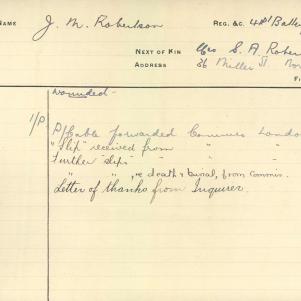 NAME J. M. Robertson REG. &C. 41st Batter
NEXT OF KIN Mrs S. A. Rober
ADDRESS 36 Miller St. Nor
wounded-
1/P P/Cable forwarded Commrs London
"Slip" received from " "
Further "slips" " " "
" " , re death & burial, from Commrs.
Letter of thanks from Inquirer.